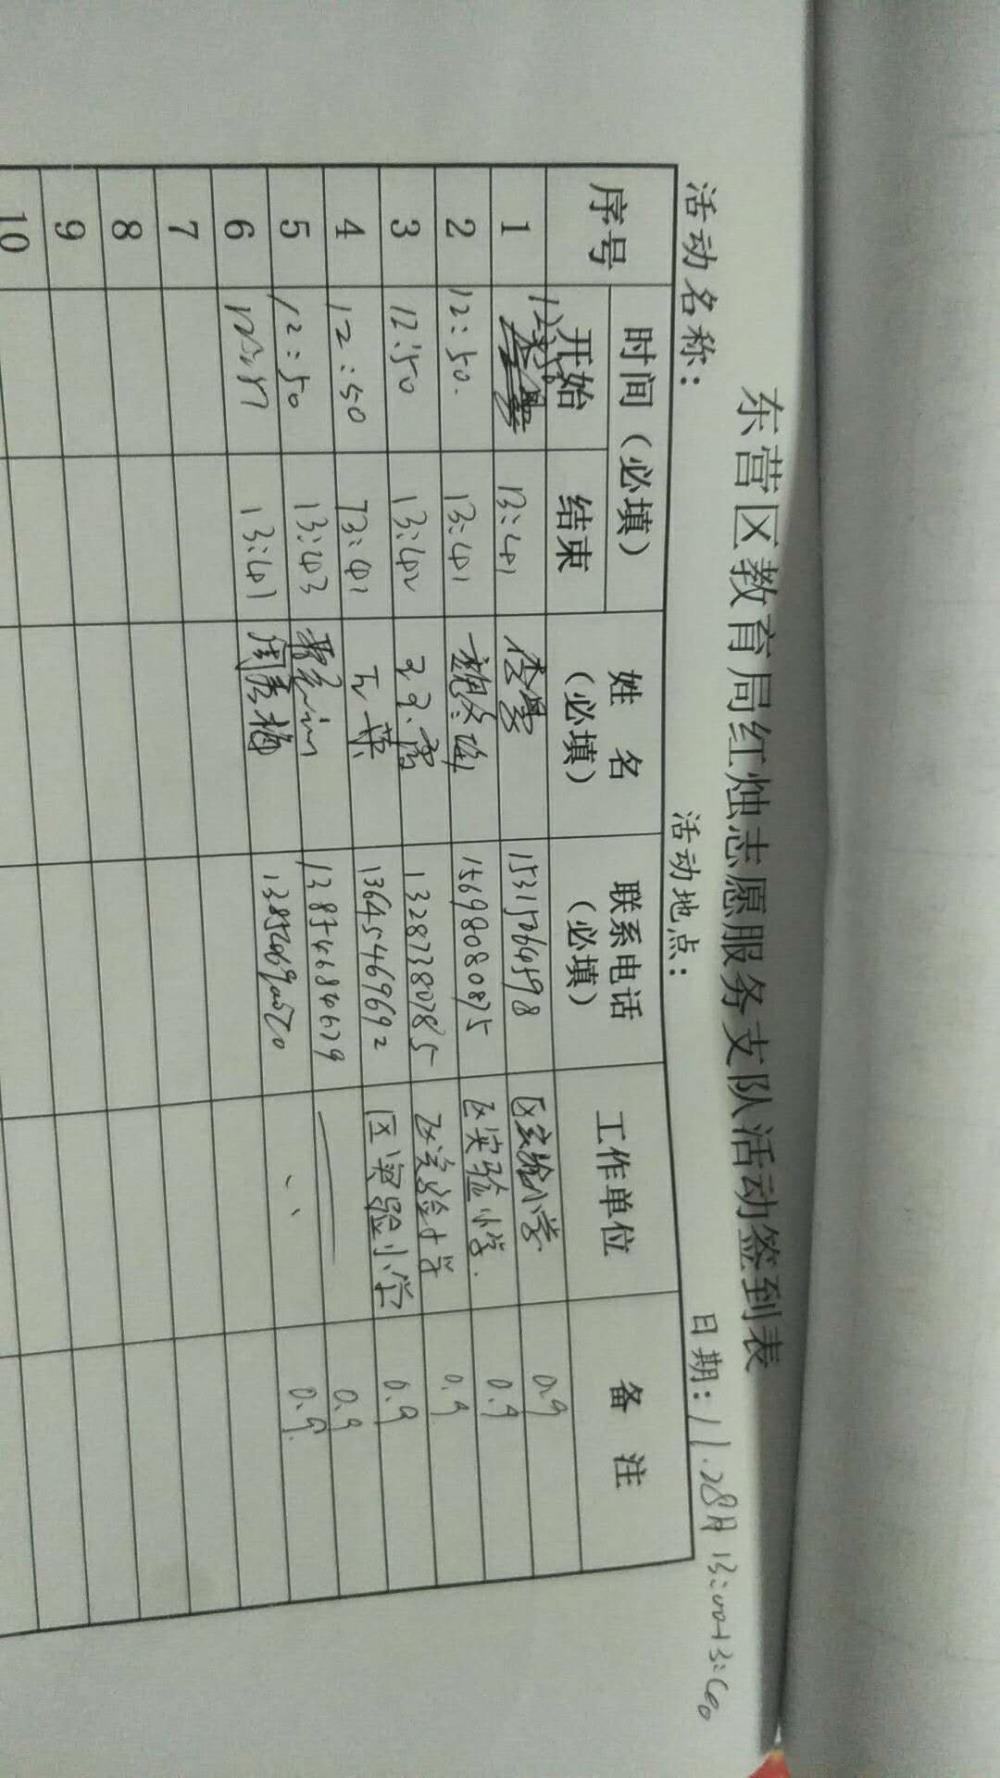 东营区教育局红烛志愿服务支队活动签到表
活动名称： 活动地点： 日期：11.28日 13:00-13:
序号 时间（必填） 姓名（必填） 联系电话（必填） 工作单位 备注
开始 结束
1 13:41 15315064598 区实验小学 0.9
2 12:50. 13:41 15698080875 区实验小学. 0.9
3 12:50 13:42 13287380785 区实验小学 0.9
4 12:50 13:42 13645469692 区实验小学 0.9
5 12:50 13:43 13854684679 0.9
6 13:41 周秀梅 0.9.
7
8
9
10